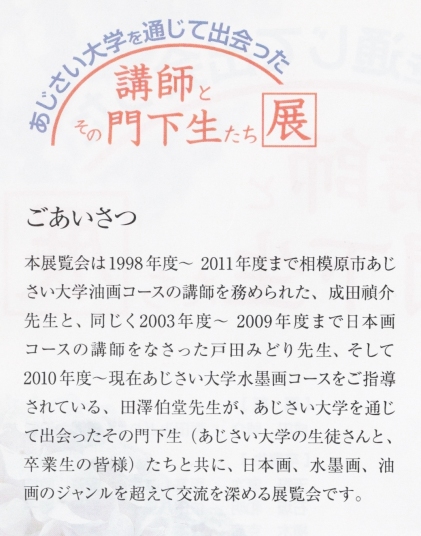 あじさい大学を通じて出会った
講師と
その門下生たち展
ごあいさつ
本展覧会は1998年度〜 2011年度まで相模原市あじ
さい大学油画コースの講師を務められた、成田禎介
先生と、同じく2003年度〜 2009年度まで日本画
コースの講師をなさった戸田みどり先生、そして
2010年度〜現在あじさい大学水墨画コースをご指導
されている、田澤伯堂先生が、あじさい大学を通じ
て出会ったその門下生（あじさい大学の生徒さんと、
卒業生の皆様）たちと共に、日本画、水墨画、油
画のジャンルを超えて交流を深める展覧会です。